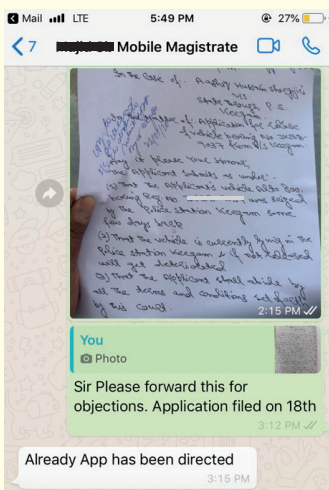 Mail LTE 5:49 PM 27%
7 Mobile Magistrate
In the Case of.
V/S
State through P.S.
Keegam.
In the matter of Application for release
of vehicle bearing No.
from P/S Keegam
May it please Your Honour,
The Applicant submits as under:
(1) That the Applicant's vehicle Alto 800,
bearing Reg. No were seized
by the Police station Keegam some
few days back
(2) That the vehicle is currently lying in the
Police station Keegam & if not released
will get deteriorated
(3) That the Applicant shall abide by
all the terms and conditions set
by this Court.
2:15 PM
You
Photo
Sir Please forward this for
objections. Application filed on 18th
3:12 PM
Already App has been directed
3:15 PM